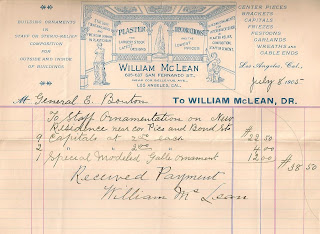 BUILDING ORNAMENTS
IN
STAFF OR STEREO-RELIEF
COMPOSITION
FOR
OUTSIDE AND INSIDE
OF BUILDINGS
PLASTER DECORATIONS
LARGEST STOCK
LATEST DESIGNS
LOWEST PRICES
WILLIAM MCLEAN
625-637 SAN FERNANDO ST.,
LOS ANGELES, CAL.
CENTER PIECES
BRACKETS
CAPITALS
FRIEZES
FESTOONS
GARLANDS
WREATHS AND
GABLE ENDS
Los Angeles, Cal.,
July 8, 1905
Mr General E. Bouton
TO WILLIAM MCLEAN, DR.
To Staff Ornamentation on New
Residence near cor Pico and Bond Sts
9 Capitals at 2.50 each $ 22.50
2 " " 2.00 " 4.00
1 Special Modeled Gable Ornament 12.00 $ 38.50
Received Payment
William McLean